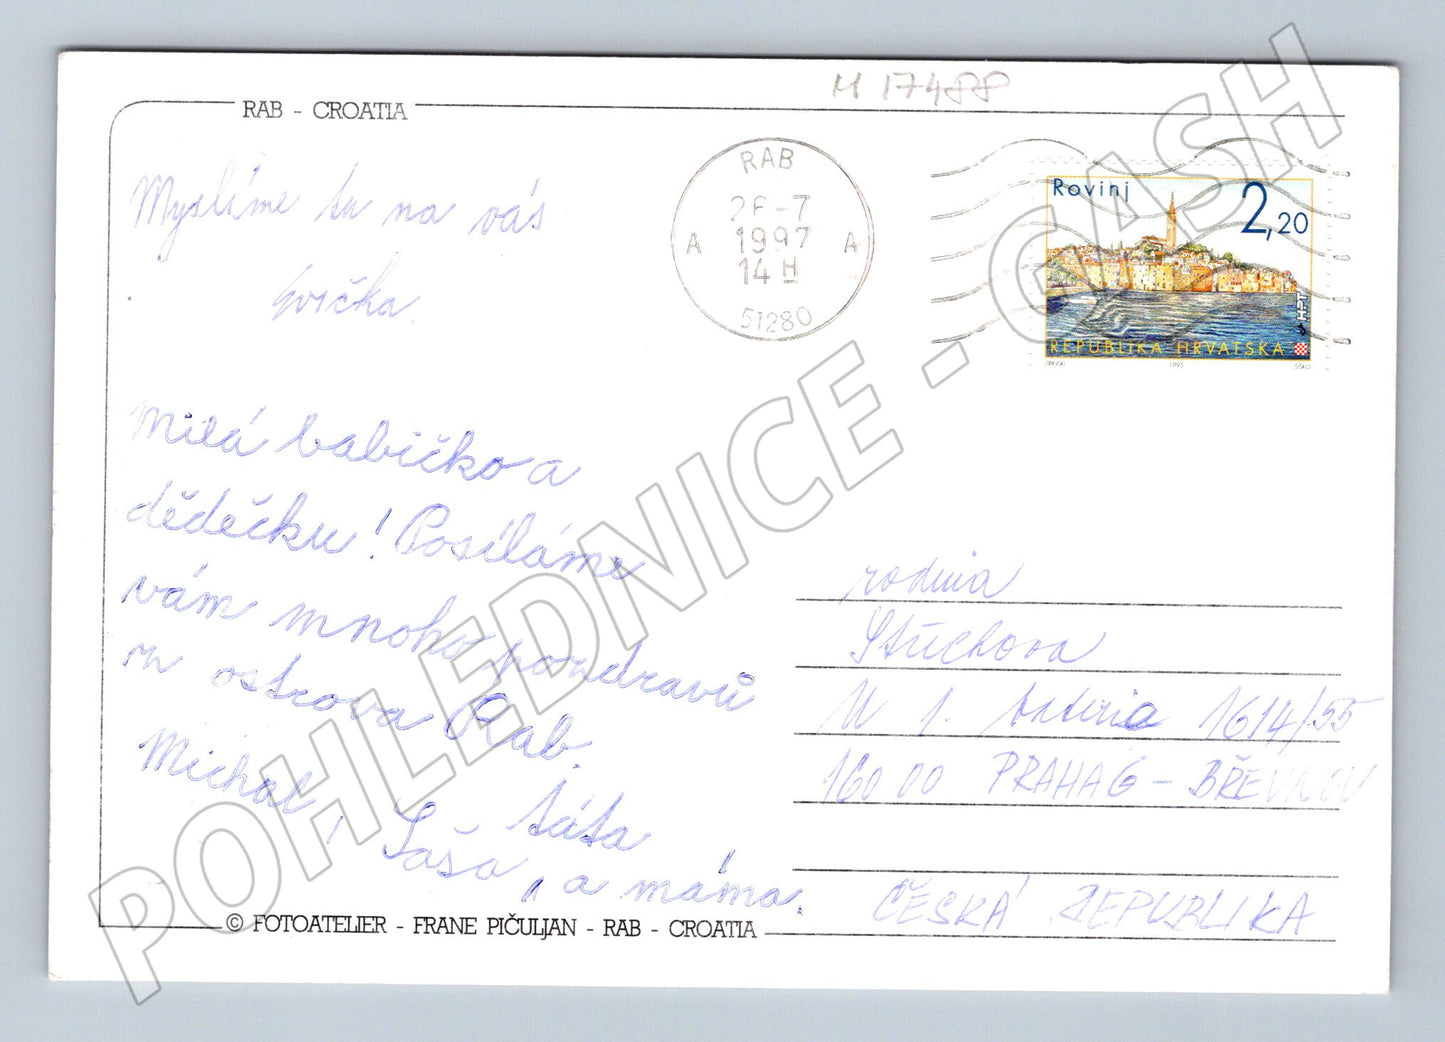 M 17488
RAB - CROATIA
Myslíme tu na vás
Evička
RAB
26-7
1997
14 H
A A
51280
Rovinj
2,20
HPT
REPUBLIKA HRVATSKA
1995
Milá babičko a
dědečku! Posíláme
vám mnoho pozdravů
z ostrova Rab.
Michal, Saša, táta,
a máma.
rodina
Stúchova
U 1. baterie 1614/55
160 00 PRAHA 6 - BŘEVNOV
ČESKÁ REPUBLIKA
© FOTOATELIER - FRANE PIČULJAN - RAB - CROATIA
POHLEDNICE - CASH